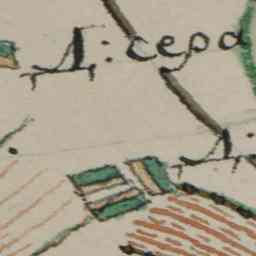 Д: сера
Д: